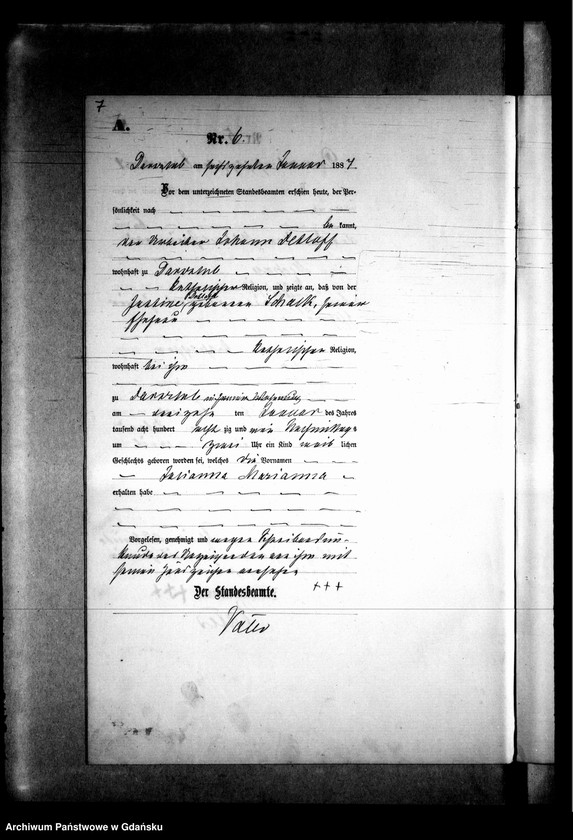 7
A.
Nr. 6.
am sechszehnten Januar 1887.
Vor dem unterzeichneten Standesbeamten erschien heute, der Per-
sönlichkeit nach
be kannt,
der Arbeiter Johann Detloff
wohnhaft zu
katholischer Religion, und zeigte an, daß von der
Justine Detloff geborenen Schalk, seiner
Ehefrau
katholischer Religion,
wohnhaft bei ihm
zu in seiner Wohnung
am dreizehn ten Januar des Jahres
tausend acht hundert acht zig und Nachmittags
um zwei Uhr ein Kind weib lichen
Geschlechts geboren worden sei, welches die Vornamen
Julianna Marianna
erhalten habe
Vorgelesen, genehmigt und wegen Schreibensun-
kunde des Anzeigenden von ihm mit
seinem Handzeichen versehen
+++
Der Standesbeamte.
Archiwum Państwowe w Gdańsku